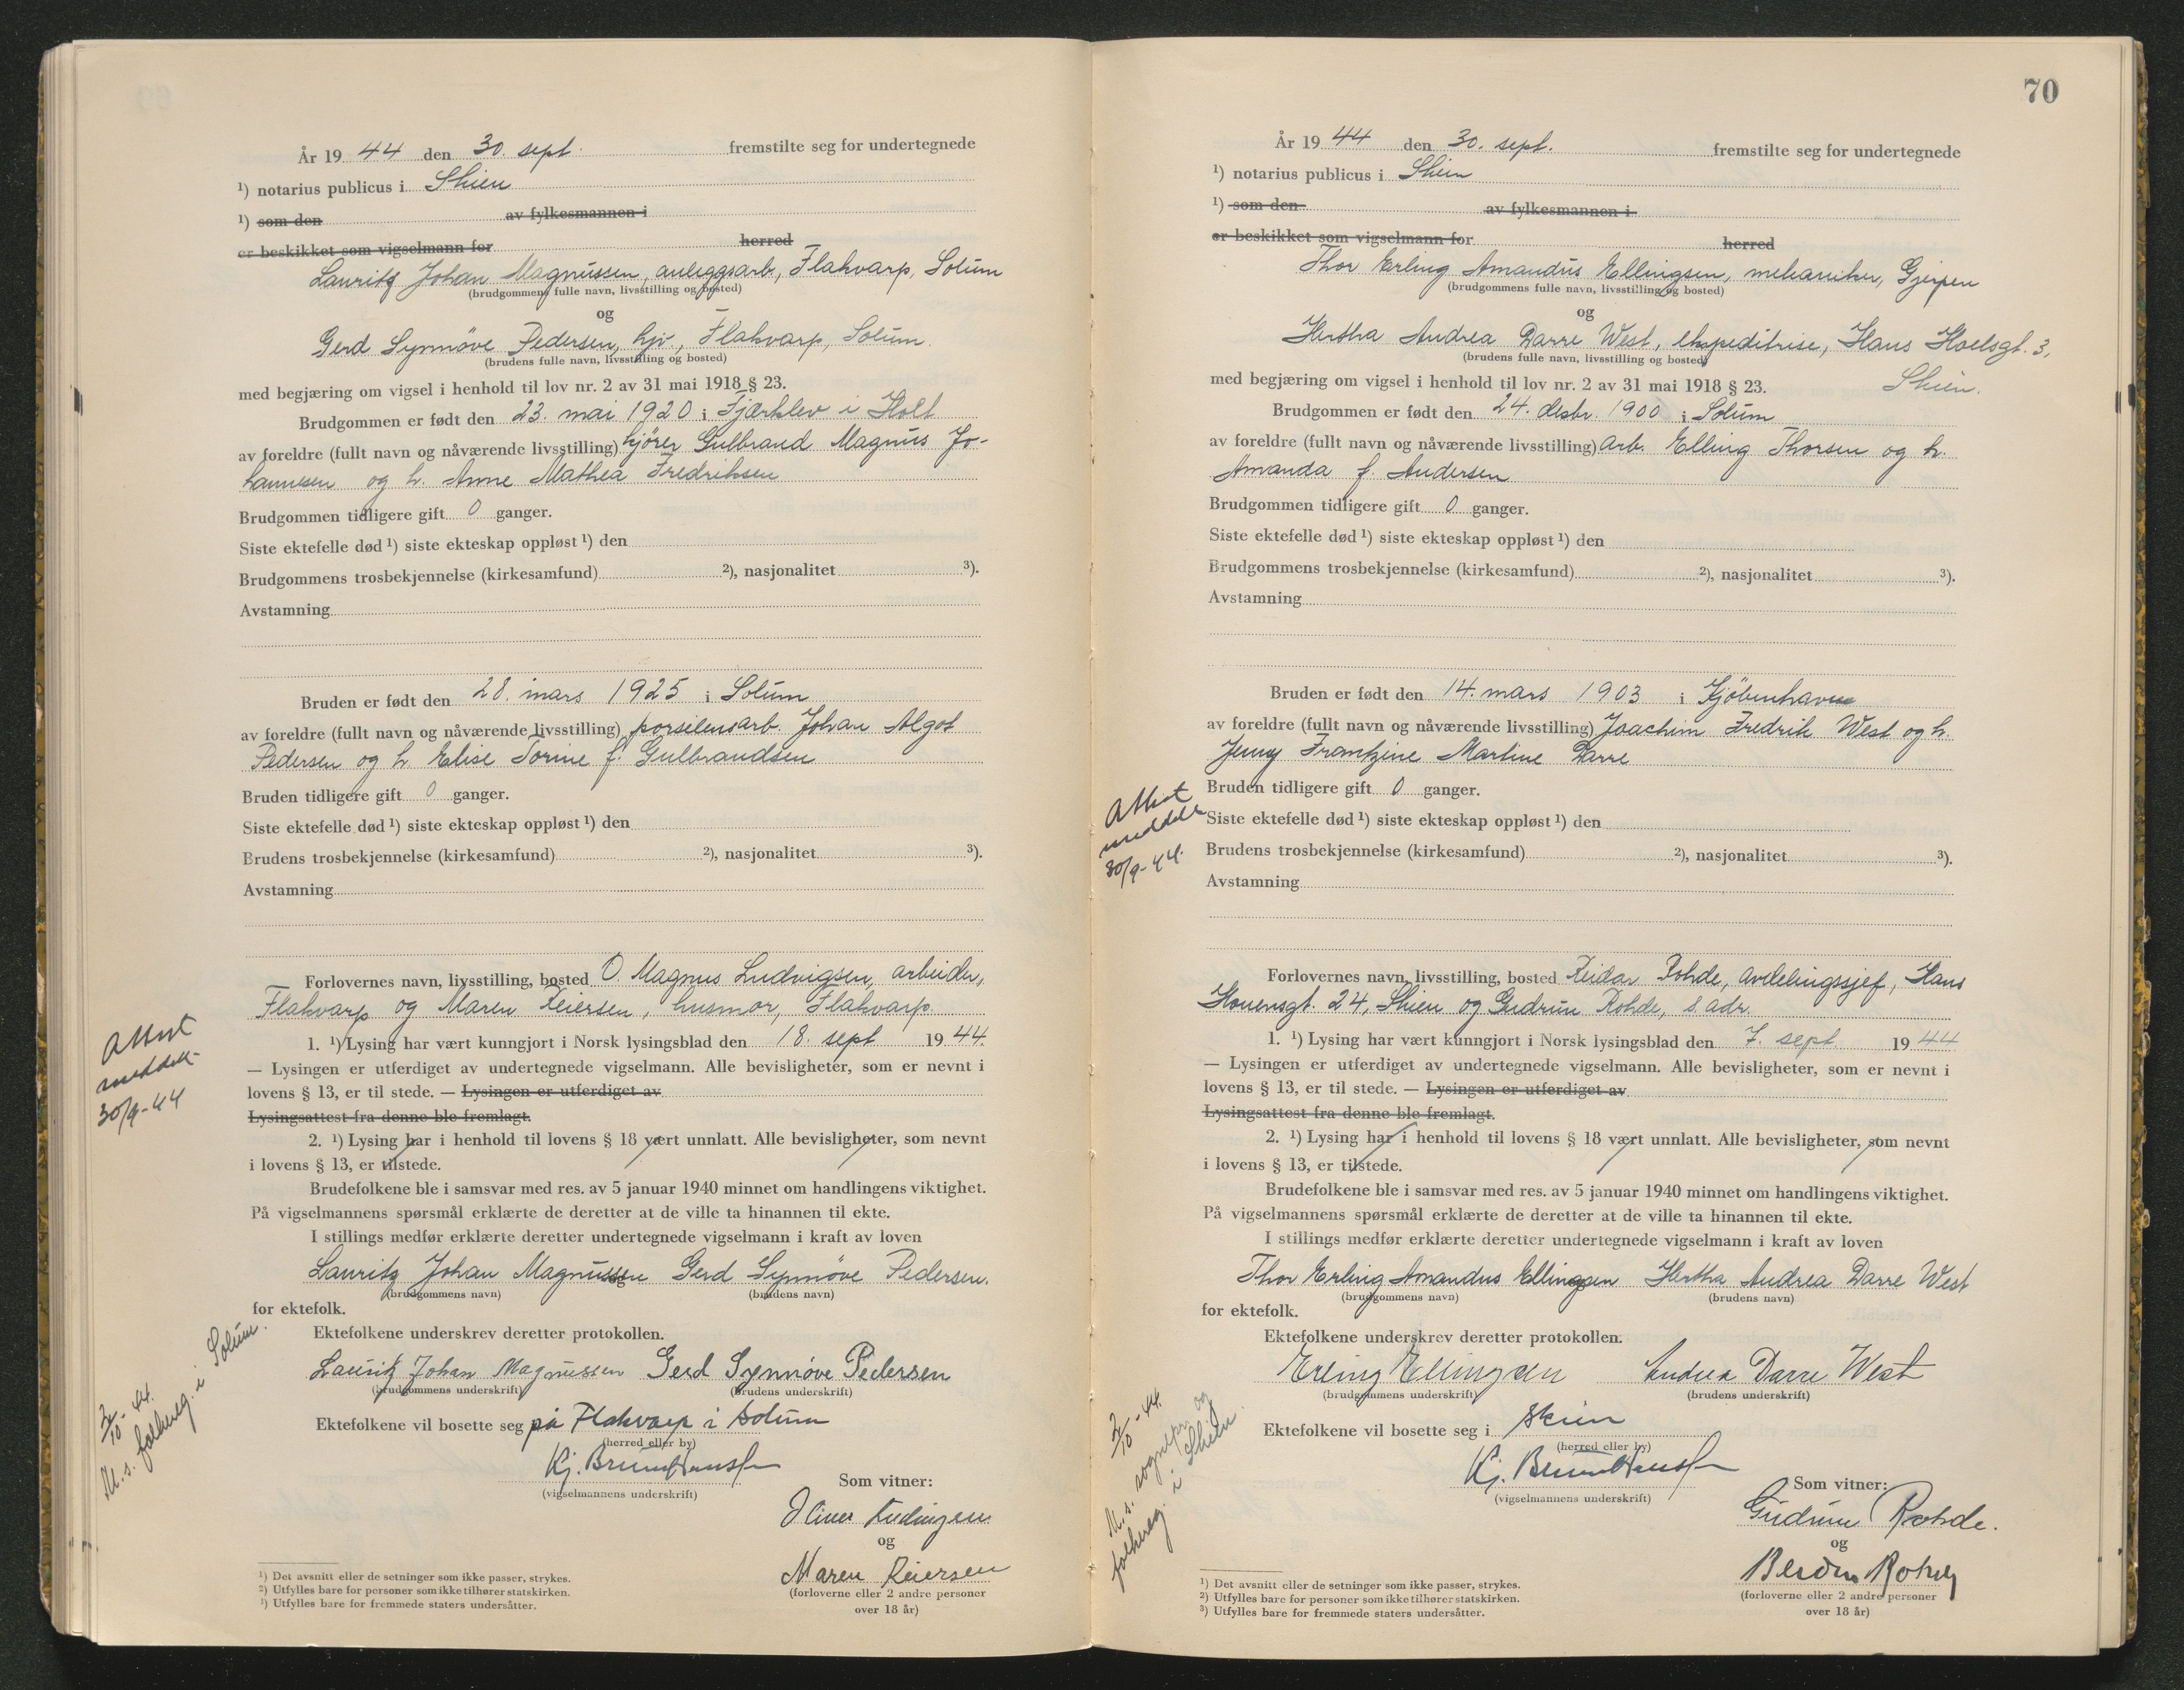 År 19 44 den 30. sept. fremstilte seg for undertegnede
¹) notarius publicus i Skien
¹) som den av fylkesmannen i
er beskikket som vigselmann for herred
Lauritz Johan Magnussen, anleggsarb., Flakvarp, Solum
(brudgommens fulle navn, livsstilling og bosted)
og
Gerd Synnöve Pedersen, hjv., Flakvarp, Solum.
(brudens fulle navn, livsstilling og bosted)
med begjæring om vigsel i henhold til lov nr. 2 av 31 mai 1918 § 23.
Brudgommen er født den 23. mai 1920 i Fjærklev i Holt
av foreldre (fullt navn og nåværende livsstilling) kjörer Gulbrand Magnus Jo-
hannesen og h. Anne Mathea Fredriksen
Brudgommen tidligere gift 0 ganger.
Siste ektefelle død ¹) siste ekteskap oppløst ¹) den
Brudgommens trosbekjennelse (kirkesamfund) ²), nasjonalitet ³).
Avstamning
Bruden er født den 28. mars 1925 i Solum
av foreldre (fullt navn og nåværende livsstilling) porselensarb. Johan Algot
Pedersen og h. Elise Torine f. Gulbrandsen
Bruden tidligere gift 0 ganger.
Siste ektefelle død ¹) siste ekteskap oppløst ¹) den
Brudens trosbekjennelse (kirkesamfund) ²), nasjonalitet ³).
Avstamning
Forlovernes navn, livsstilling, bosted O. Magnus Ludvigsen, arbeider,
Flakvarp og Maren Reiersen, husmor, Flakvarp.
1. ¹) Lysing har vært kunngjort i Norsk lysingsblad den 18. sept 19 44.
— Lysingen er utferdiget av undertegnede vigselmann. Alle bevisligheter, som er nevnt i
lovens § 13, er til stede. — Lysingen er utferdiget av
Lysingsattest fra denne ble fremlagt.
2. ¹) Lysing har i henhold til lovens § 18 vært unnlatt. Alle bevisligheter, som nevnt
i lovens § 13, er tilstede.
Brudefolkene ble i samsvar med res. av 5 januar 1940 minnet om handlingens viktighet.
På vigselmannens spørsmål erklærte de deretter at de ville ta hinannen til ekte.
I stillings medfør erklærte deretter undertegnede vigselmann i kraft av loven
Lauritz Johan Magnussen Gerd Synnöve Pedersen.
(brudgommens navn) (brudens navn)
for ektefolk.
Ektefolkene underskrev deretter protokollen.
Lauritz Johan Magnussen Gerd Synnöve Pedersen
(brudgommens underskrift) (brudens underskrift)
Ektefolkene vil bosette seg på Flakvarp i Solum
(herred eller by)
Kj.
(vigselmannens underskrift)
Som vitner:
og
Maren Reiersen
(forloverne eller 2 andre personer
over 18 år)
¹) Det avsnitt eller de setninger som ikke passer, strykes.
²) Utfylles bare for personer som ikke tilhører statskirken.
³) Utfylles bare for fremmede staters undersåtter.
Attest
meddelt
30/9-44
2/10-44.
M. s. folkereg. i Solum.
70
År 19 44 den 30. sept. fremstilte seg for undertegnede
¹) notarius publicus i Skien
¹) som den av fylkesmannen i
er beskikket som vigselmann for herred
Thor Erling Amandus Ellingsen, mekaniker, Gjerpen
(brudgommens fulle navn, livsstilling og bosted)
og
Hertha Andrea Darre West, ekspeditrise, Hans Hoelsgt. 3,
(brudens fulle navn, livsstilling og bosted)
Skien.
med begjæring om vigsel i henhold til lov nr. 2 av 31 mai 1918 § 23.
Brudgommen er født den 24. desbr. 1900 i Solum
av foreldre (fullt navn og nåværende livsstilling) Arb. Elling Thorsen og h.
Amanda f. Andersen
Brudgommen tidligere gift 0 ganger.
Siste ektefelle død ¹) siste ekteskap oppløst ¹) den
Brudgommens trosbekjennelse (kirkesamfund) ²), nasjonalitet ³).
Avstamning
Bruden er født den 14. mars 1903 i Kjöbenhavn
av foreldre (fullt navn og nåværende livsstilling) Joachim Fredrik West og h.
Jenny Frantzine Martine Darre
Bruden tidligere gift 0 ganger.
Siste ektefelle død ¹) siste ekteskap oppløst ¹) den
Brudens trosbekjennelse (kirkesamfund) ²), nasjonalitet ³).
Avstamning
Forlovernes navn, livsstilling, bosted Reidar Rohde, avdelingssjef, Hans
Houensgt. 24, Skien og Gudrun Rohde, s. adr.
1. ¹) Lysing har vært kunngjort i Norsk lysingsblad den 7. sept. 19 44
— Lysingen er utferdiget av undertegnede vigselmann. Alle bevisligheter, som er nevnt i
lovens § 13, er til stede. — Lysingen er utferdiget av
Lysingsattest fra denne ble fremlagt.
2. ¹) Lysing har i henhold til lovens § 18 vært unnlatt. Alle bevisligheter, som nevnt
i lovens § 13, er tilstede.
Brudefolkene ble i samsvar med res. av 5 januar 1940 minnet om handlingens viktighet.
På vigselmannens spørsmål erklærte de deretter at de ville ta hinannen til ekte.
I stillings medfør erklærte deretter undertegnede vigselmann i kraft av loven
Thor Erling Amandus Ellingsen Hertha Andrea Darre West
(brudgommens navn) (brudens navn)
for ektefolk.
Ektefolkene underskrev deretter protokollen.
Erling Ellingsen Andrea Darre West
(brudgommens underskrift) (brudens underskrift)
Ektefolkene vil bosette seg i Skien
(herred eller by)
Kj.
(vigselmannens underskrift)
Som vitner:
Gudrun Rohde.
og
(forloverne eller 2 andre personer
over 18 år)
¹) Det avsnitt eller de setninger som ikke passer, strykes.
²) Utfylles bare for personer som ikke tilhører statskirken.
³) Utfylles bare for fremmede staters undersåtter.
Attest
meddelt
30/9-44.
2/10-44.
M. s. sognepr. og
folkereg. i Skien.